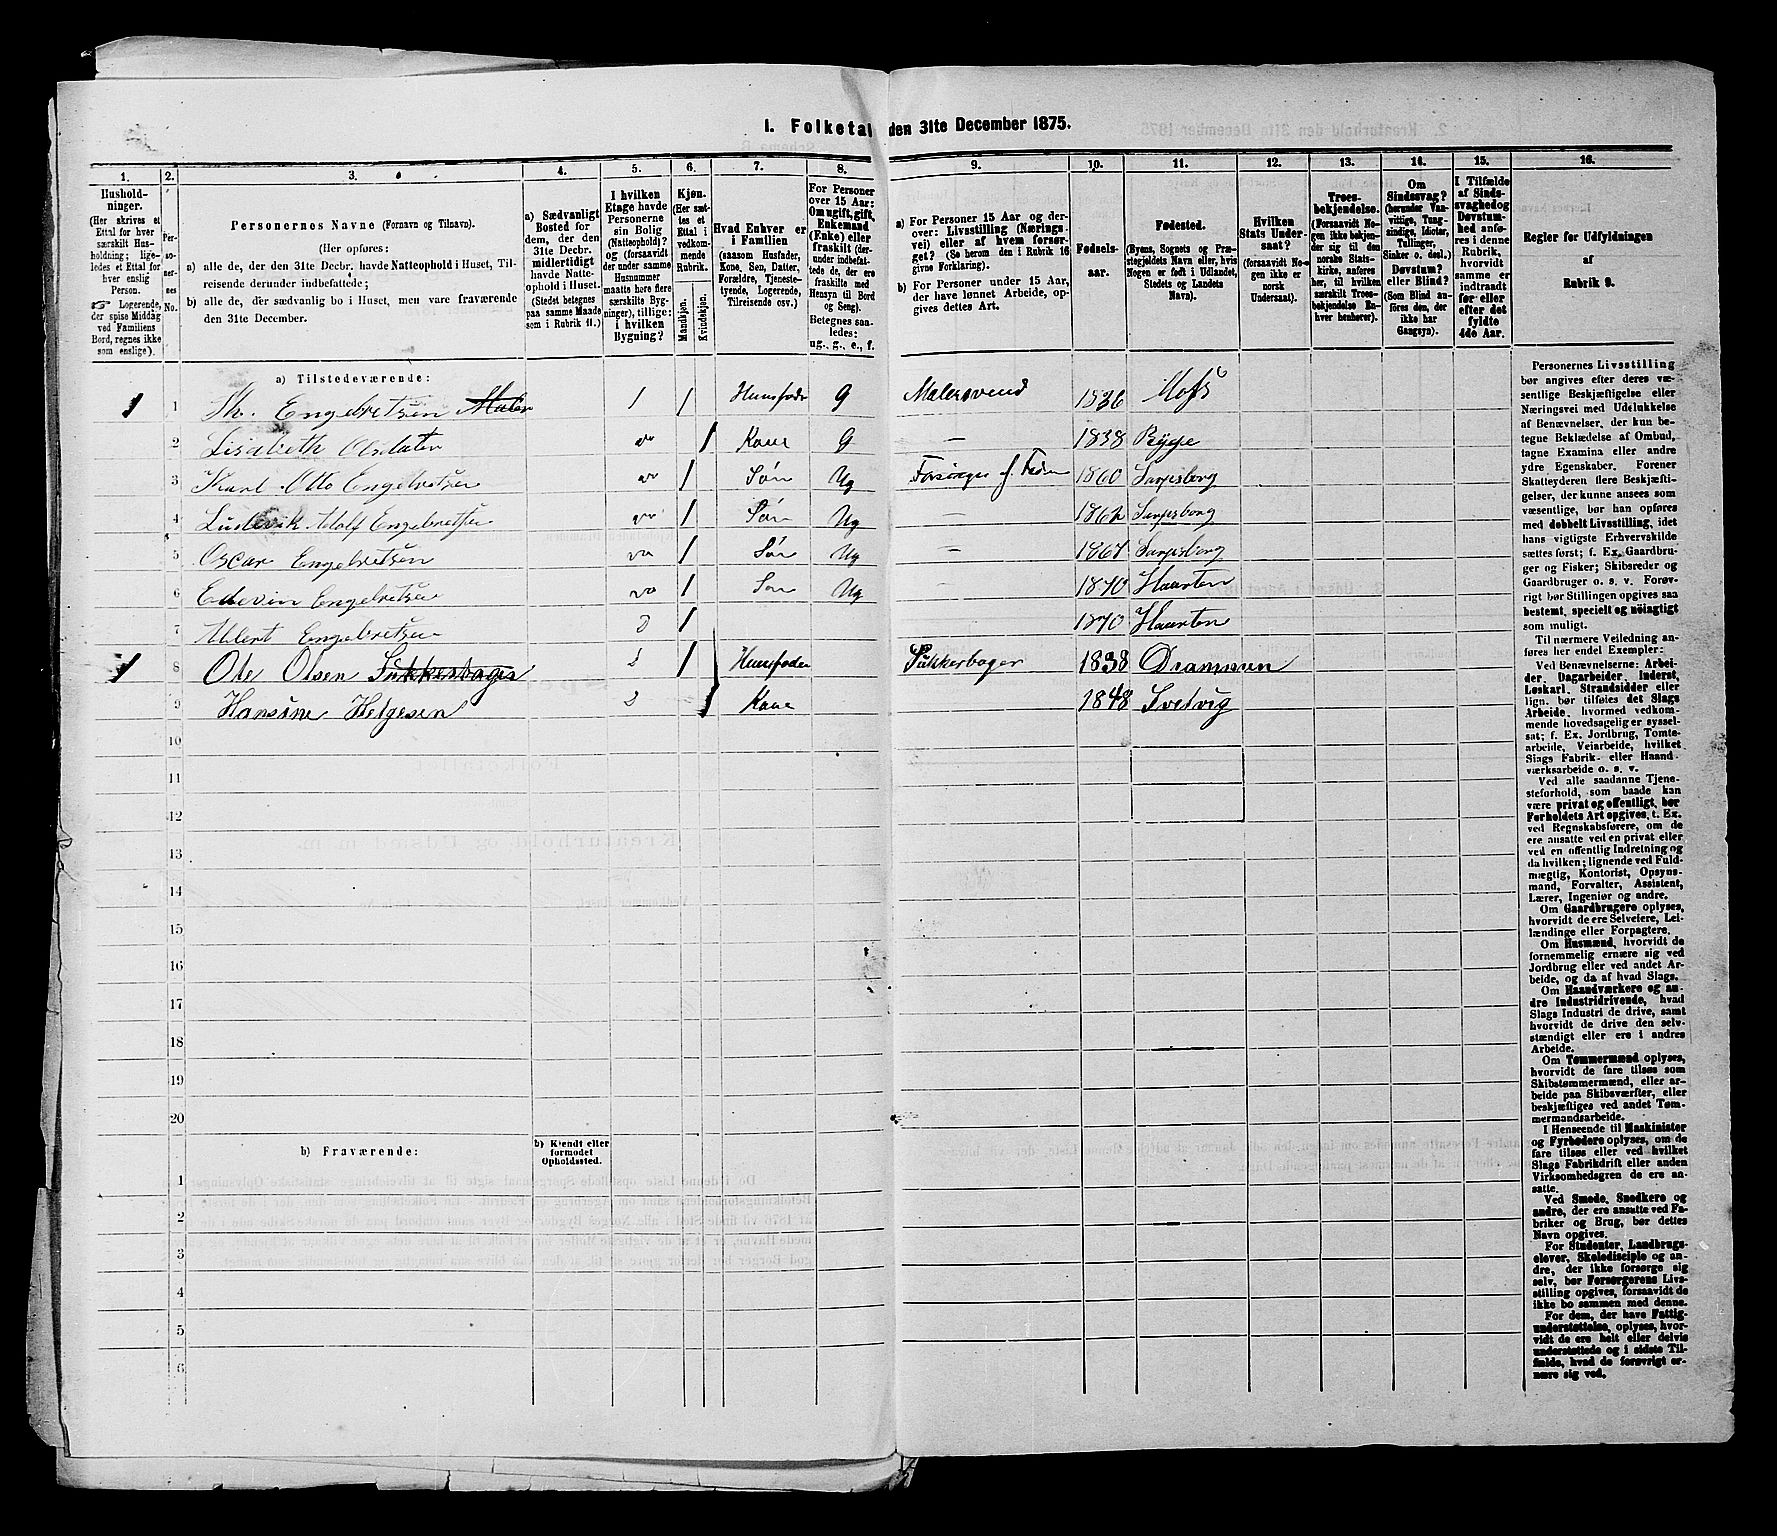 1. Folketal den 31te December 1875.
1. 2. 3. 4. 5. 6. 7. 8. 9. 10. 11. 12. 13. 14. 15. 16.
Hushold-
ninger.
(Her skrives et
Ettal for hver
særskilt Hus-
holdning; lige-
ledes et Ettal for
hver enslig
Person.
☞ Logerende,
der spise Middag
ved Familiens
Bord, regnes ikke
som enslige).
Per-
so-
ner-
nes
No.
Personernes Navne (Fornavn og Tilnavn).
(Her opføres:
a) alle de, der den 31te Decbr. havde Natteophold i Huset, Til-
reisende derunder indbefattede;
b) alle de, der sædvanlig bo i Huset, men vare fraværende
den 31te December.
a) Sædvanligt
Bosted for
dem, der den
31te Decbr.
midlertidigt
havde Natte-
ophold i Huset.
(Stedet betegnes
paa samme Maade
som i Rubrik 11.)
I hvilken
Etage havde
Personerne
sin Bolig
(Natteophold)?
og (forsaavidt
der under samme
Husnummer
maatte høre flere
særskilte Byg-
ninger), tillige:
i hvilken
Bygning?
Kjøn.
(Her sæt-
tes et
Ettal i
vedkom-
mende
Rubrik.
Mandkjøn.
Kvindekjøn.
Hvad Enhver er
i Familien
(saasom Husfader,
Kone, Søn, Datter,
Forældre, Tjeneste-
tyende, Logerende,
Tilreisende osv.)
For Personer
over 15 Aar:
Om ugift, gift,
Enkemand
(Enke) eller
fraskilt (der-
under indbefat-
tede de, der ere
fraskilte med
Hensyn til Bord
og Seng).
Betegnes saa-
ledes:
ug., g., e., f.
a) For Personer 15 Aar og der-
over: Livsstilling (Nærings-
vei) eller af hvem forsør-
get? (Se herom den i Rubrik 16
givne Forklaring).
b) For Personer under 15 Aar,
der have lønnet Arbeide, op-
gives dettes Art.
Fødsels-
aar.
Fødested.
(Byens, Sognets og Præ-
stegjeldets Navn eller, hvis
Nogen er født i Udlandet,
Stedets og Landets
Navn).
Hvilken
Stats Under-
saat?
(forsaavidt No-
gen ikke er
norsk
Undersaat).
Troes-
bekjendelse.
(Forsaavidt No-
gen ikke bekjen-
der sig til den
norske Stats-
kirke, anføres
her, til hvilken
særskilt Troes-
bekjendelse En-
hver henhører).
Om
Sindssvag?
(herunder Van-
vittige, Tung-
sindige, Idioter,
Tullinger,
Sinker o. desl.)
Døvstum?
eller Blind?
(Som Blind an-
føres den, der
ikke har
Gangsyn).
I Tilfælde
af Sinds-
svaghed og
Døvstum-
hed anfø-
res i denne
Rubrik,
hvorvidt
samme er
indtraadt
før eller
efter det
fyldte
4de Aar.
Regler for Udfyldningen
af
Rubrik 9.
a) Tilstedeværende:
1 1 Th. Engebretsen Maler 1 1 Huusfader G Malersvend 1836 Moss
2 Lisabeth Olsdater 1 Kone G — 1838 Rygge
3 Karl Otto Engebretsen 1 Søn Ug Forsørges af Faderen 1860 Sarpsborg
4 Ludevik Adolf Engebretsen 1 Søn Ug — 1862 Sarpsborg
5 Oscar Engebretsen 1 Søn Ug — 1867 Sarpsborg
6 Edevin Engebretsen 1 Søn Ug — 1870 Haarten
7 Albert Engebretsen 2 1 1870 Haarten
1 8 Ole Olsen Sukkerbager 2 1 Huusfader Sukkerbager 1838 Drammen
9 Hansine Helgesen 2 1 Kone 1848 Svelvig
10
11
12
13
14
15
16
17
18
19
20
b) Fraværende:
b) Kjendt eller
formodet
Opholdssted.
1
2
3
4
5
6
Personernes Livsstilling
bør angives efter deres væ-
sentlige Beskjæftigelse eller
Næringsvei med Udelukkelse
af Benævnelser, der kun be-
tegne Beklædelse af Ombud,
tagne Examina eller andre
ydre Egenskaber. Forener
Skatteyderen flere Beskjæfti-
gelser, der kunne ansees som
væsentlige, bør han opføres
med dobbelt Livsstilling, idet
hans vigtigste Erhvervskilde
sættes først; f. Ex. Gaardbru-
ger og Fisker; Skibsreder og
Gaardbruger o. s. v. Forøv-
rigt bør Stillingen opgives saa
bestemt, specielt og nøiagtigt
som muligt.
Til nærmere Veiledning an-
føres her endel Exempler:
Ved Benævnelserne: Arbei-
der, Dagarbeider, Inderst,
Løskarl, Strandsidder eller
lign. bør tilføies det Slags
Arbeide, hvormed vedkom-
mende hovedsagelig er syssel-
sat; f. Ex. Jordbrug, Tomte-
arbeide, Veiarbeide, hvilket
Slags Fabrik- eller Haand-
værksarbeide o. s. v.
Ved alle saadanne Tjene-
steforhold, som baade kan
være privat og offentligt, bør
Forholdets Art opgives, t. Ex.
ved Regnskabsførere, om de
ere ansatte ved en privat eller
ved en offentlig Indretning og
da hvilken; lignende ved Fuld-
mægtig, Kontorist, Opsyns-
mand, Forvalter, Assistent,
Lærer, Ingeniør og andre.
Om Gaardbrugere oplyses,
hvorvidt de ere Selveiere, Lei-
lændinge eller Forpagtere.
Om Husmænd, hvorvidt de
fornemmelig ernære sig ved
Jordbrug eller ved andet Ar-
beide, og da af hvad Slags.
Om Haandværkere og an-
dre Industridrivende, hvad
Slags Industri de drive, samt
hvorvidt de drive den selv-
stændigt eller ere i andres
Arbeide.
Om Tømmermænd oplyses,
hvorvidt de fare tilsøs som
Skibstømmermænd, eller ar-
beide paa Skibsværfter, eller
beskjæftiges ved andet Tøm-
mermandsarbeide.
I Henseende til Maskinister
og Fyrbødere oplyses, om de
fare tilsøs eller ved hvilket
Slags Fabrikdrift eller anden
Virksomhedsgren de ere an-
satte.
Ved Smede, Snedkere og
andre, der ere ansatte ved Fa-
briker og Brug, bør dettes
Navn opgives.
For Studenter, Landbrugs-
elever, Skoledisciple og an-
dre, der ikke forsørge sig
selv, bør Forsørgerens Livs-
stilling opgives, forsaavidt de
ikke bo sammen med denne.
For dem, der have Fattig-
understøttelse, oplyses, hvor-
vidt de ere helt eller delvis
understøttede og i sidste Til-
fælde, hvad de forøvrigt er-
nære sig ved.